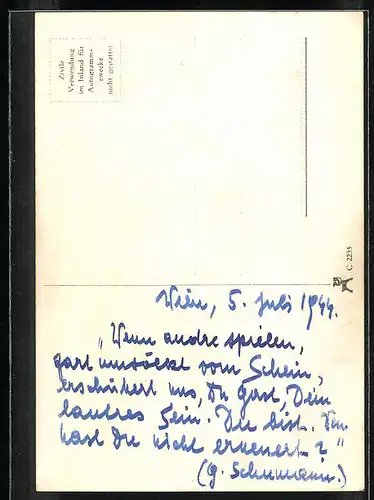 Zivile
Verwendung
im Inland für
Autogramm-
zwecke
nicht gestattet
C 2235
Wien, 5. Juli 1944.
"Wenn andre spielen,
zart umwölkt vom Schein,
erschüttert uns, Du Gast, Dein
lautres Sein. Du bist.
hast Du nicht erneuert?"
(G. Schumann.)